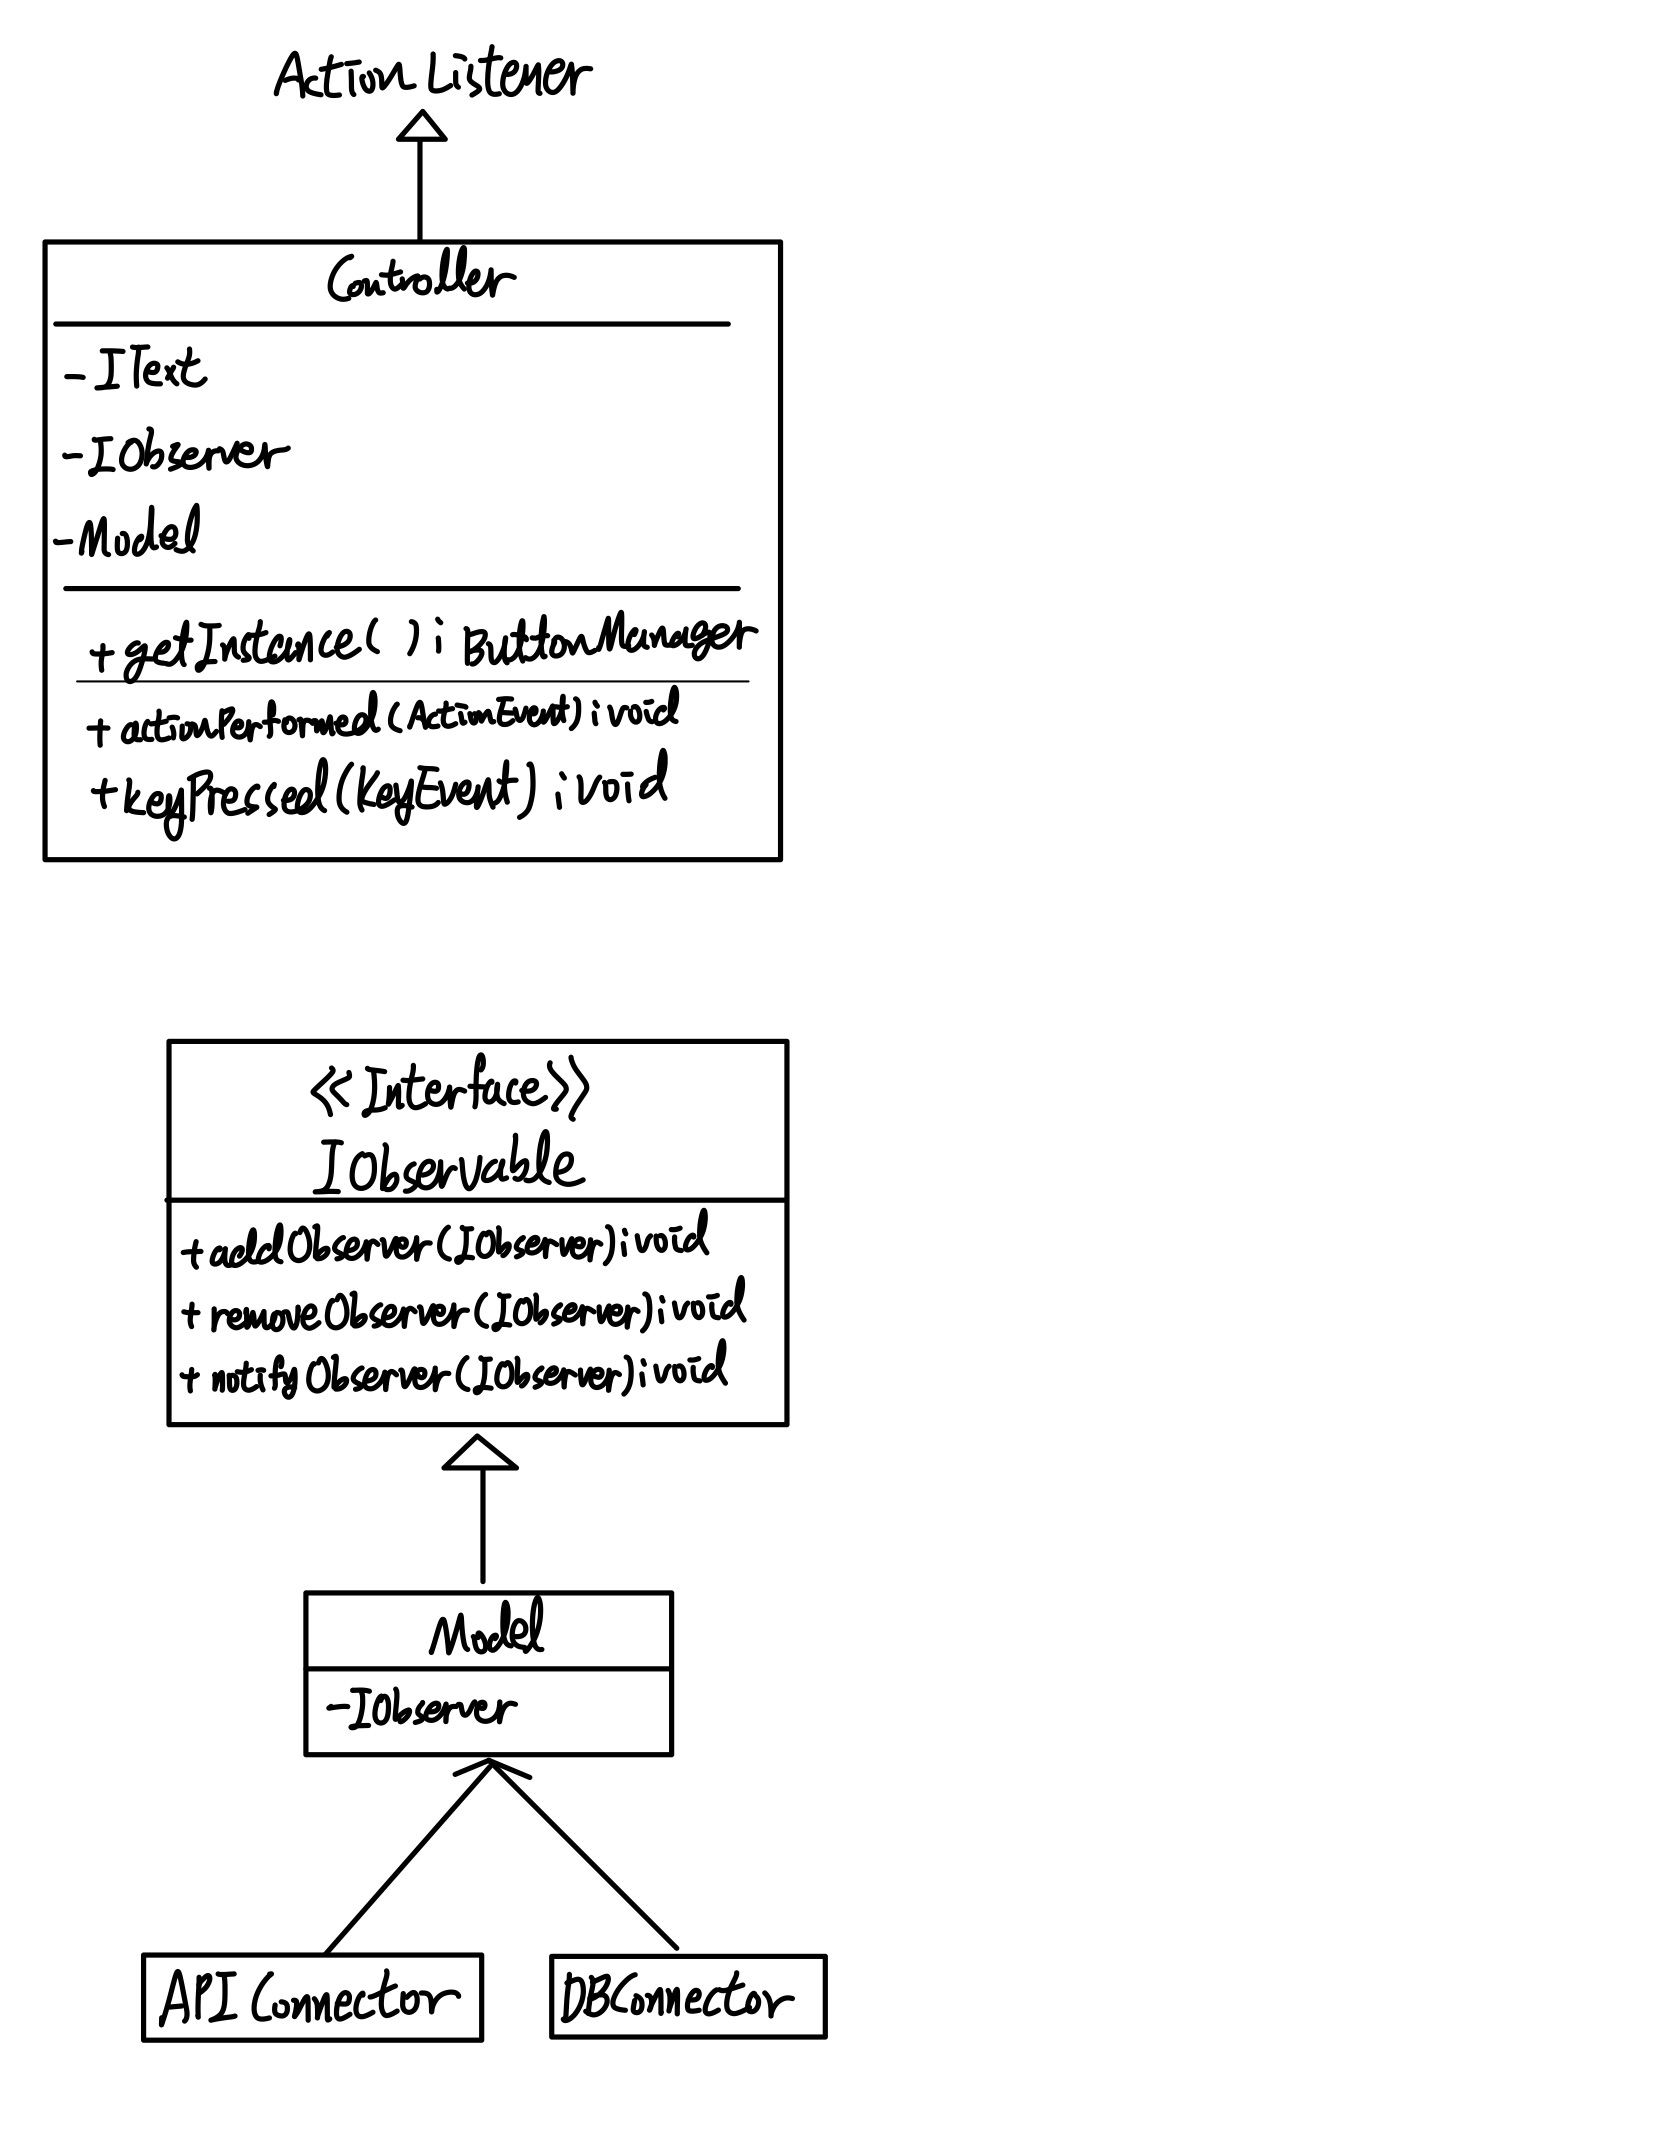 Action Listener
Controller
- IText
- IObserver
- Model
+ getInstance( ) : ButtonManager
+ actionPerformed (ActionEvent) : void
+ keyPressed (KeyEvent) : void
<<Interface>>
IObservable
+ addObserver (IObserver) : void
+ removeObserver (IObserver) : void
+ notifyObserver (IObserver) : void
Model
- IObserver
API Connector
DBConnector